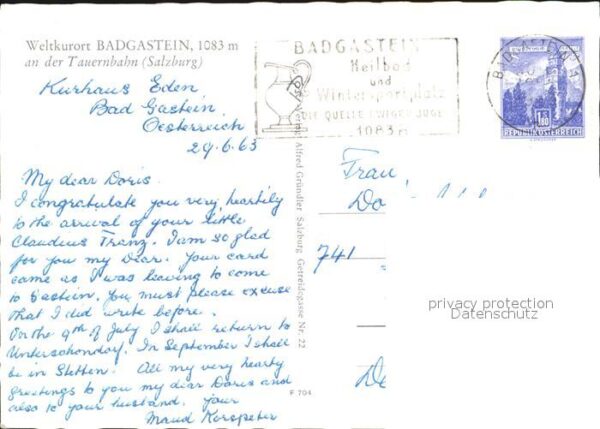 Weltkurort BADGASTEIN, 1083 m
an der Tauernbahn (Salzburg)
Kurhaus Eden,
Bad Gastein,
Oesterreich
29.6.63
My dear Doris.
I congratulate you very heartily
to the arrival of your little
Claudius Franz. I am so glad
for you my Dear. Your card
came as I was leaving to come
to Gastein. You must please excuse
that I did write before.
On the 9th of July I shall return to
Unterschondorf. In September I shall
be in Stetten. All my very hearty
greetings to you my dear Doris and
also to your husband. your
Maud Kerspeter
BADGASTEIN
Heilbad
und
Wintersportplatz
DIE QUELLE EWIGER JUGEND
1083 m
BADGASTEIN 1
1.80
REPUBLIK ÖSTERREICH
Verlag Alfred Gründler, Salzburg, Getreidegasse Nr. 22
F 704
Frau,
Do
741
De
privacy protection
Datenschutz